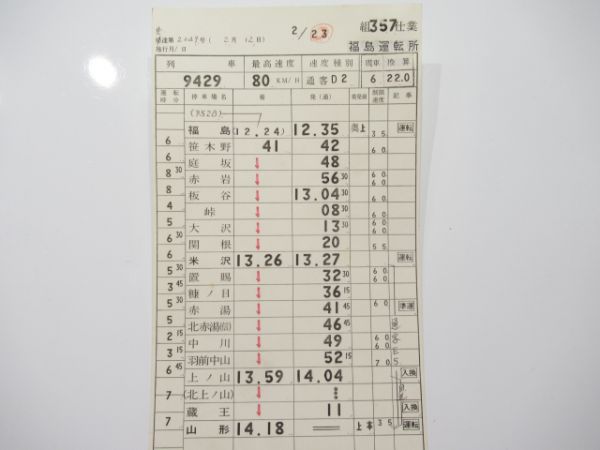 2/23 組357仕業
達第2049号(2月12日)
施行月/日 福島運転所
列車 最高速度 速度種別 現車 換算
9429 80 KM/H 通客D2 6 22.0
運転時分 停車場名 着 発(通) 着発線 制限速度 記事
福島 (12.24) 12.35 奥上 35 運転
6 笹木野 41 42 60
6 庭坂 ↓ 48
8 30 赤岩 ↓ 56 30 60 60
8 板谷 ↓ 13.04 30 60
4 峠 ↓ 08 30 60
5 大沢 ↓ 13 30 60 60
6 30 関根 ↓ 20 55
6 米沢 13.26 13.27 運転
5 30 置賜 ↓ 32 30 60 60
3 45 糠ノ目 ↓ 36 15
5 30 赤湯 ↓ 41 45 60 準運
5 北赤湯(信) ↓ 46 45
2 15 中川 ↓ 49 60 60
3 15 羽前中山 ↓ 52 15 70
6 45 上ノ山 13.59 14.04 入換
(北上ノ山) ↓
7 蔵王 ↓ 11 入換
7 山形 14.18 == 上本 35 運転